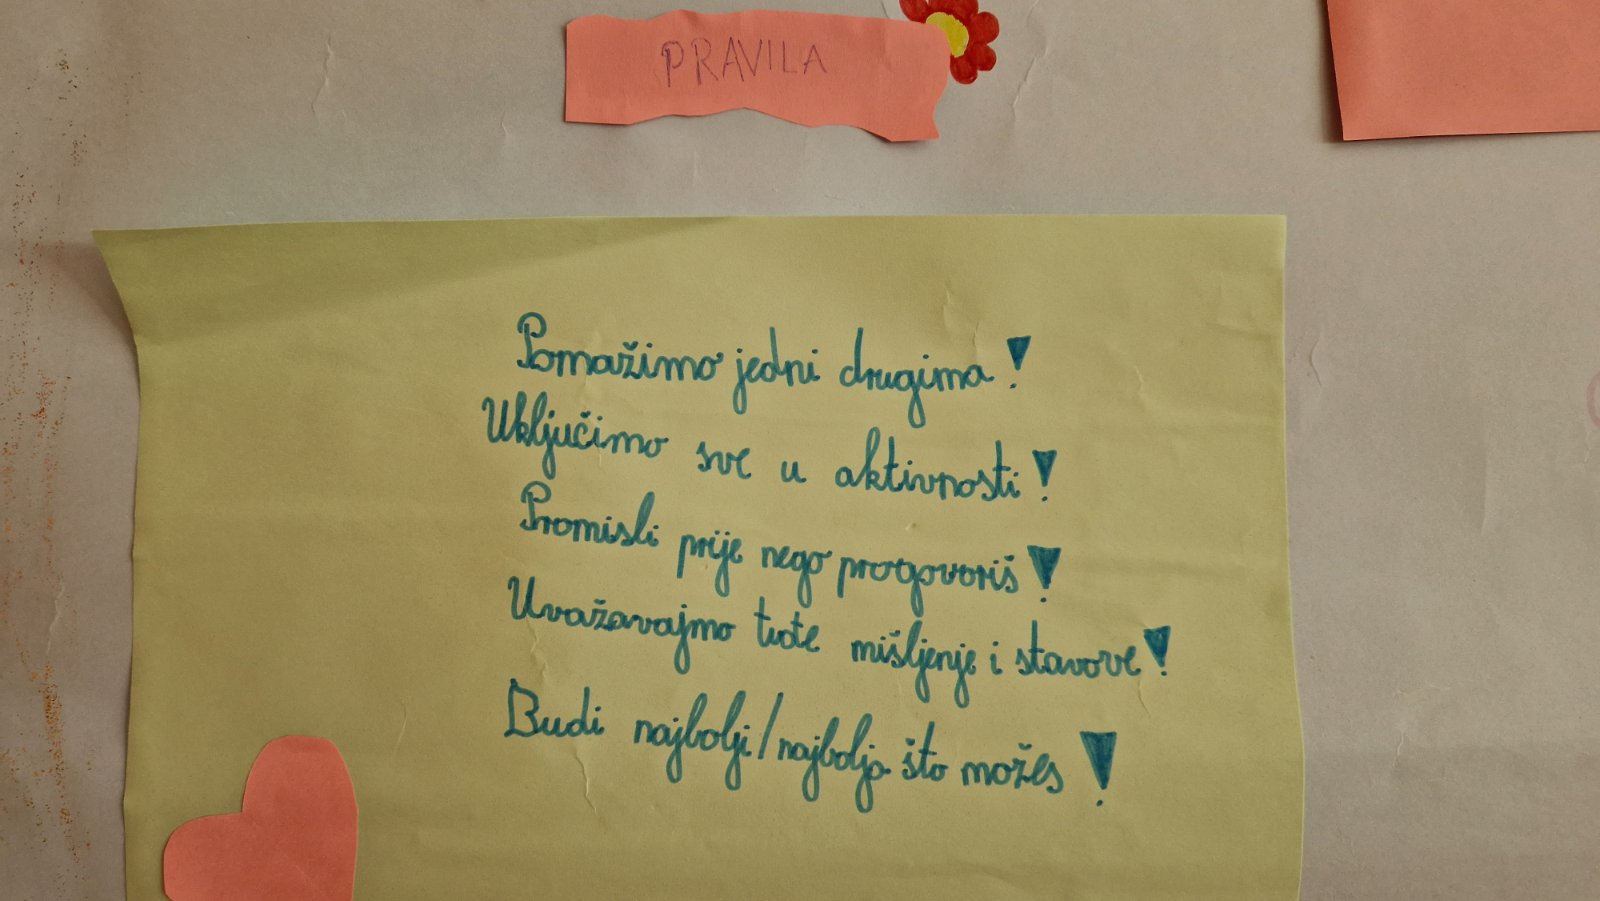 PRAVILA
Pomažimo jedni drugima!
Uključimo sve u aktivnosti!
Promisli prije nego progovoriš!
Uvažavajmo tuđe mišljenje i stavove!
Budi najbolji/najbolja što možeš!